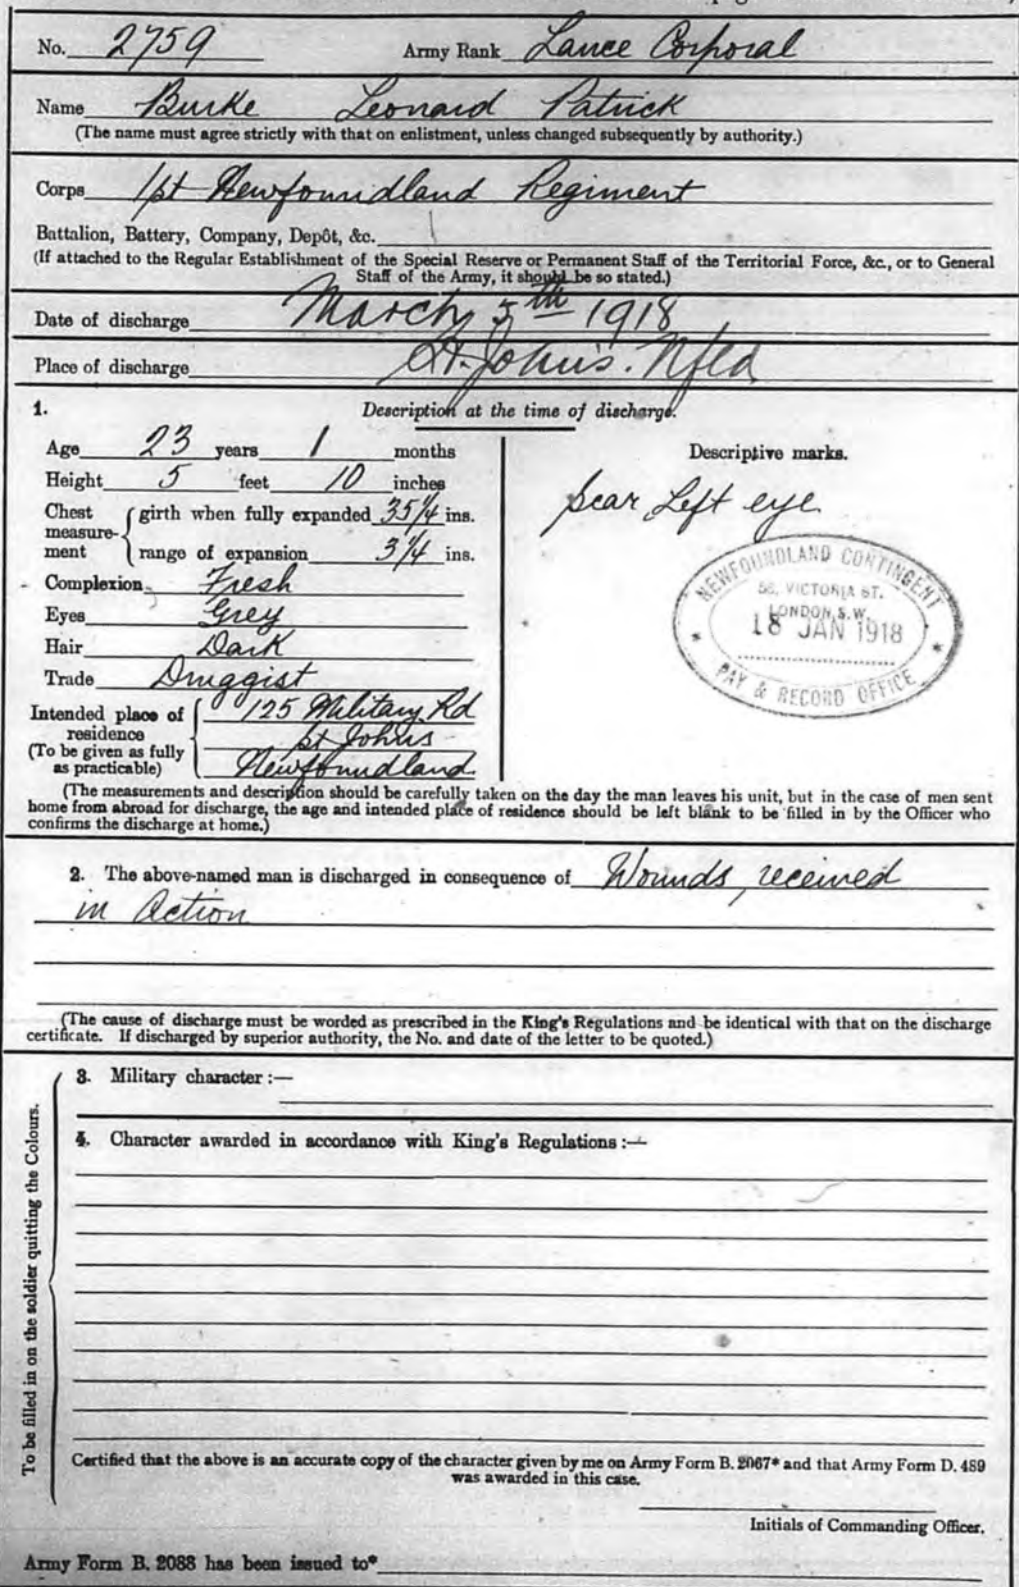 No. 2759 Army Rank Lance Corporal
Name Burke Leonard Patrick
(The name must agree strictly with that on enlistment, unless changed subsequently by authority.)
Corps 1st Newfoundland Regiment
Battalion, Battery, Company, Depôt, &c.
(If attached to the Regular Establishment of the Special Reserve or Permanent Staff of the Territorial Force, &c., or to General
Staff of the Army, it should be so stated.)
Date of discharge March 5th 1918
Place of discharge St. John's. Nfld
1. Description at the time of discharge.
Age 23 years 1 months
Height 5 feet 10 inches
Chest measure-ment girth when fully expanded 35 1/4 ins.
range of expansion 3 1/4 ins.
Complexion Fresh
Eyes Grey
Hair Dark
Trade Druggist
Intended place of residence (To be given as fully as practicable) 125 Military Rd
St Johns
Newfoundland
Descriptive marks.
Scar Left eye
NEWFOUNDLAND CONTINGENT
58, VICTORIA ST.
LONDON, S.W.
18 JAN 1918
PAY & RECORD OFFICE
(The measurements and description should be carefully taken on the day the man leaves his unit, but in the case of men sent
home from abroad for discharge, the age and intended place of residence should be left blank to be filled in by the Officer who
confirms the discharge at home.)
2. The above-named man is discharged in consequence of Wounds, received
in Action
(The cause of discharge must be worded as prescribed in the King's Regulations and be identical with that on the discharge
certificate. If discharged by superior authority, the No. and date of the letter to be quoted.)
To be filled in on the soldier quitting the Colours.
3. Military character :—
4. Character awarded in accordance with King's Regulations :—
Certified that the above is an accurate copy of the character given by me on Army Form B. 2067* and that Army Form D. 489
was awarded in this case.
Initials of Commanding Officer.
Army Form B. 2088 has been issued to*